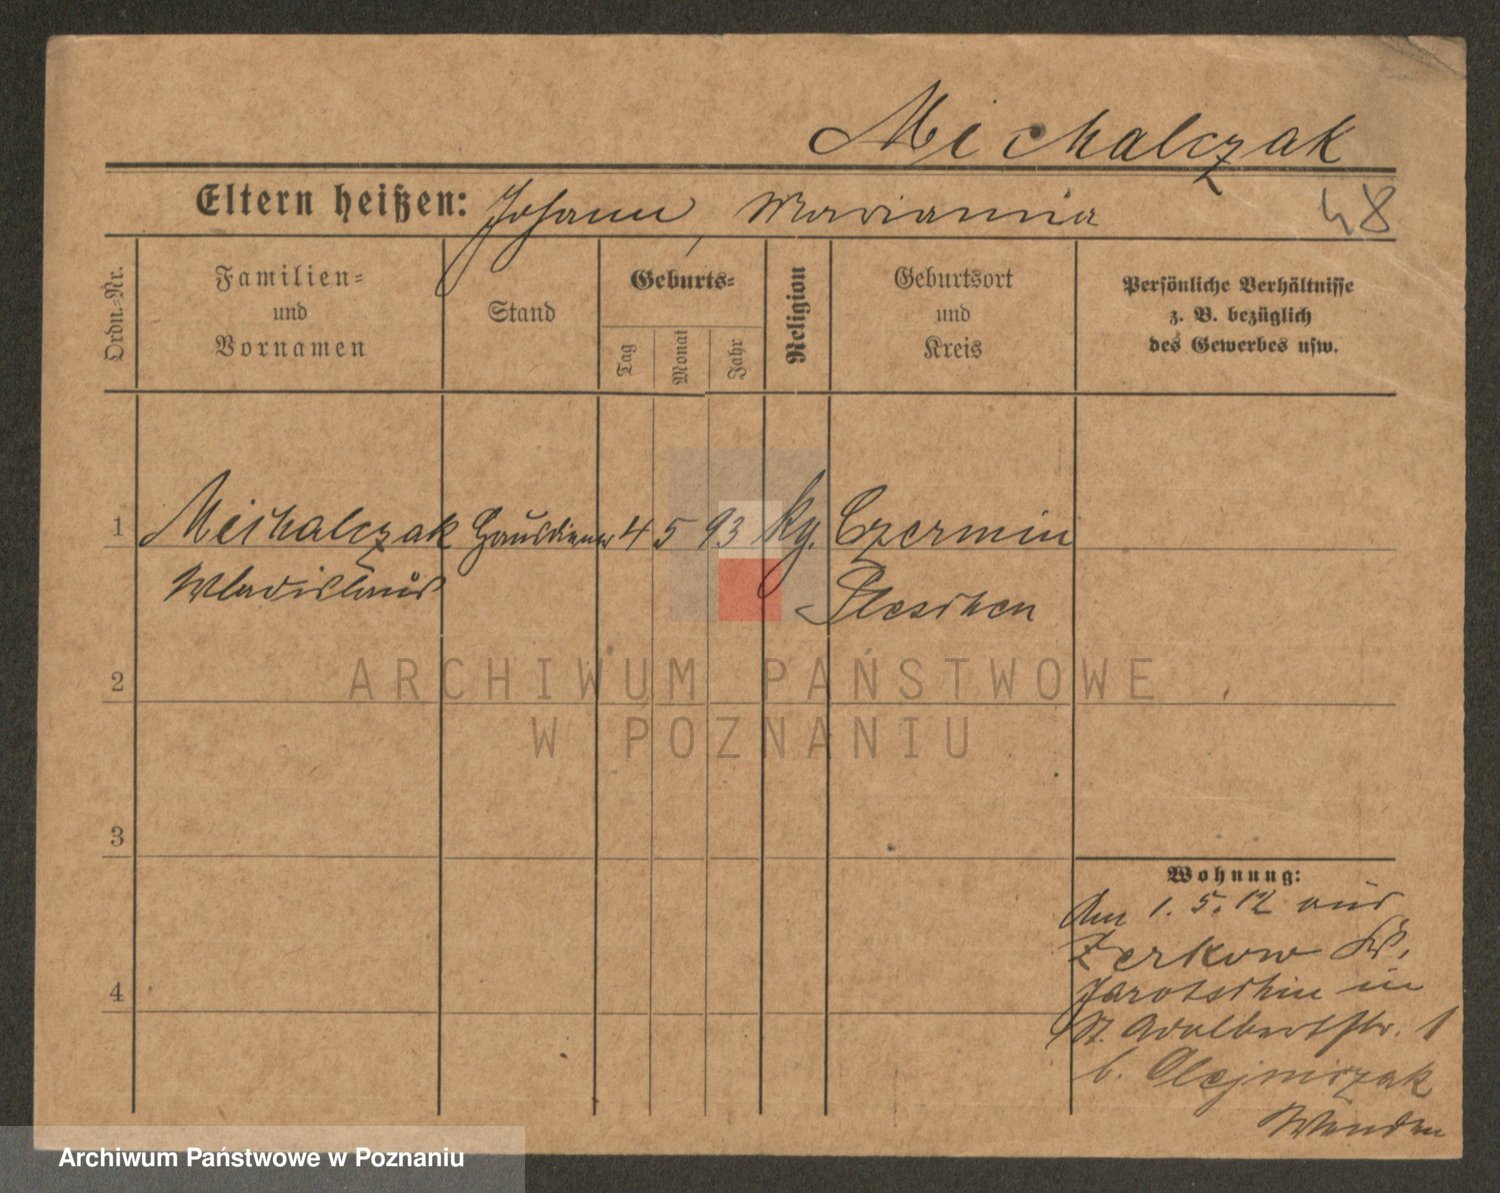 Michalczak
Eltern heißen: Johann, Marianna
48
Ordn.-Nr.
Familien-
und
Vornamen
Stand
Geburts-
Tag
Monat
Jahr
Religion
Geburtsort
und
Kreis
Persönliche Verhältnisse
z. B. bezüglich
des Gewerbes usw.
1 Michalczak Hausdiener 4 5 93 Kg. Czermin
Wladislaus Pleschen
2
3
4
Wohnung:
Am 1. 5. 12 aus
Zerkow Kr.
Jarotschin in
St. Adalbertstr. 1
b. Olejniczak
ARCHIWUM PAŃSTWOWE
W POZNANIU
Archiwum Państwowe w Poznaniu